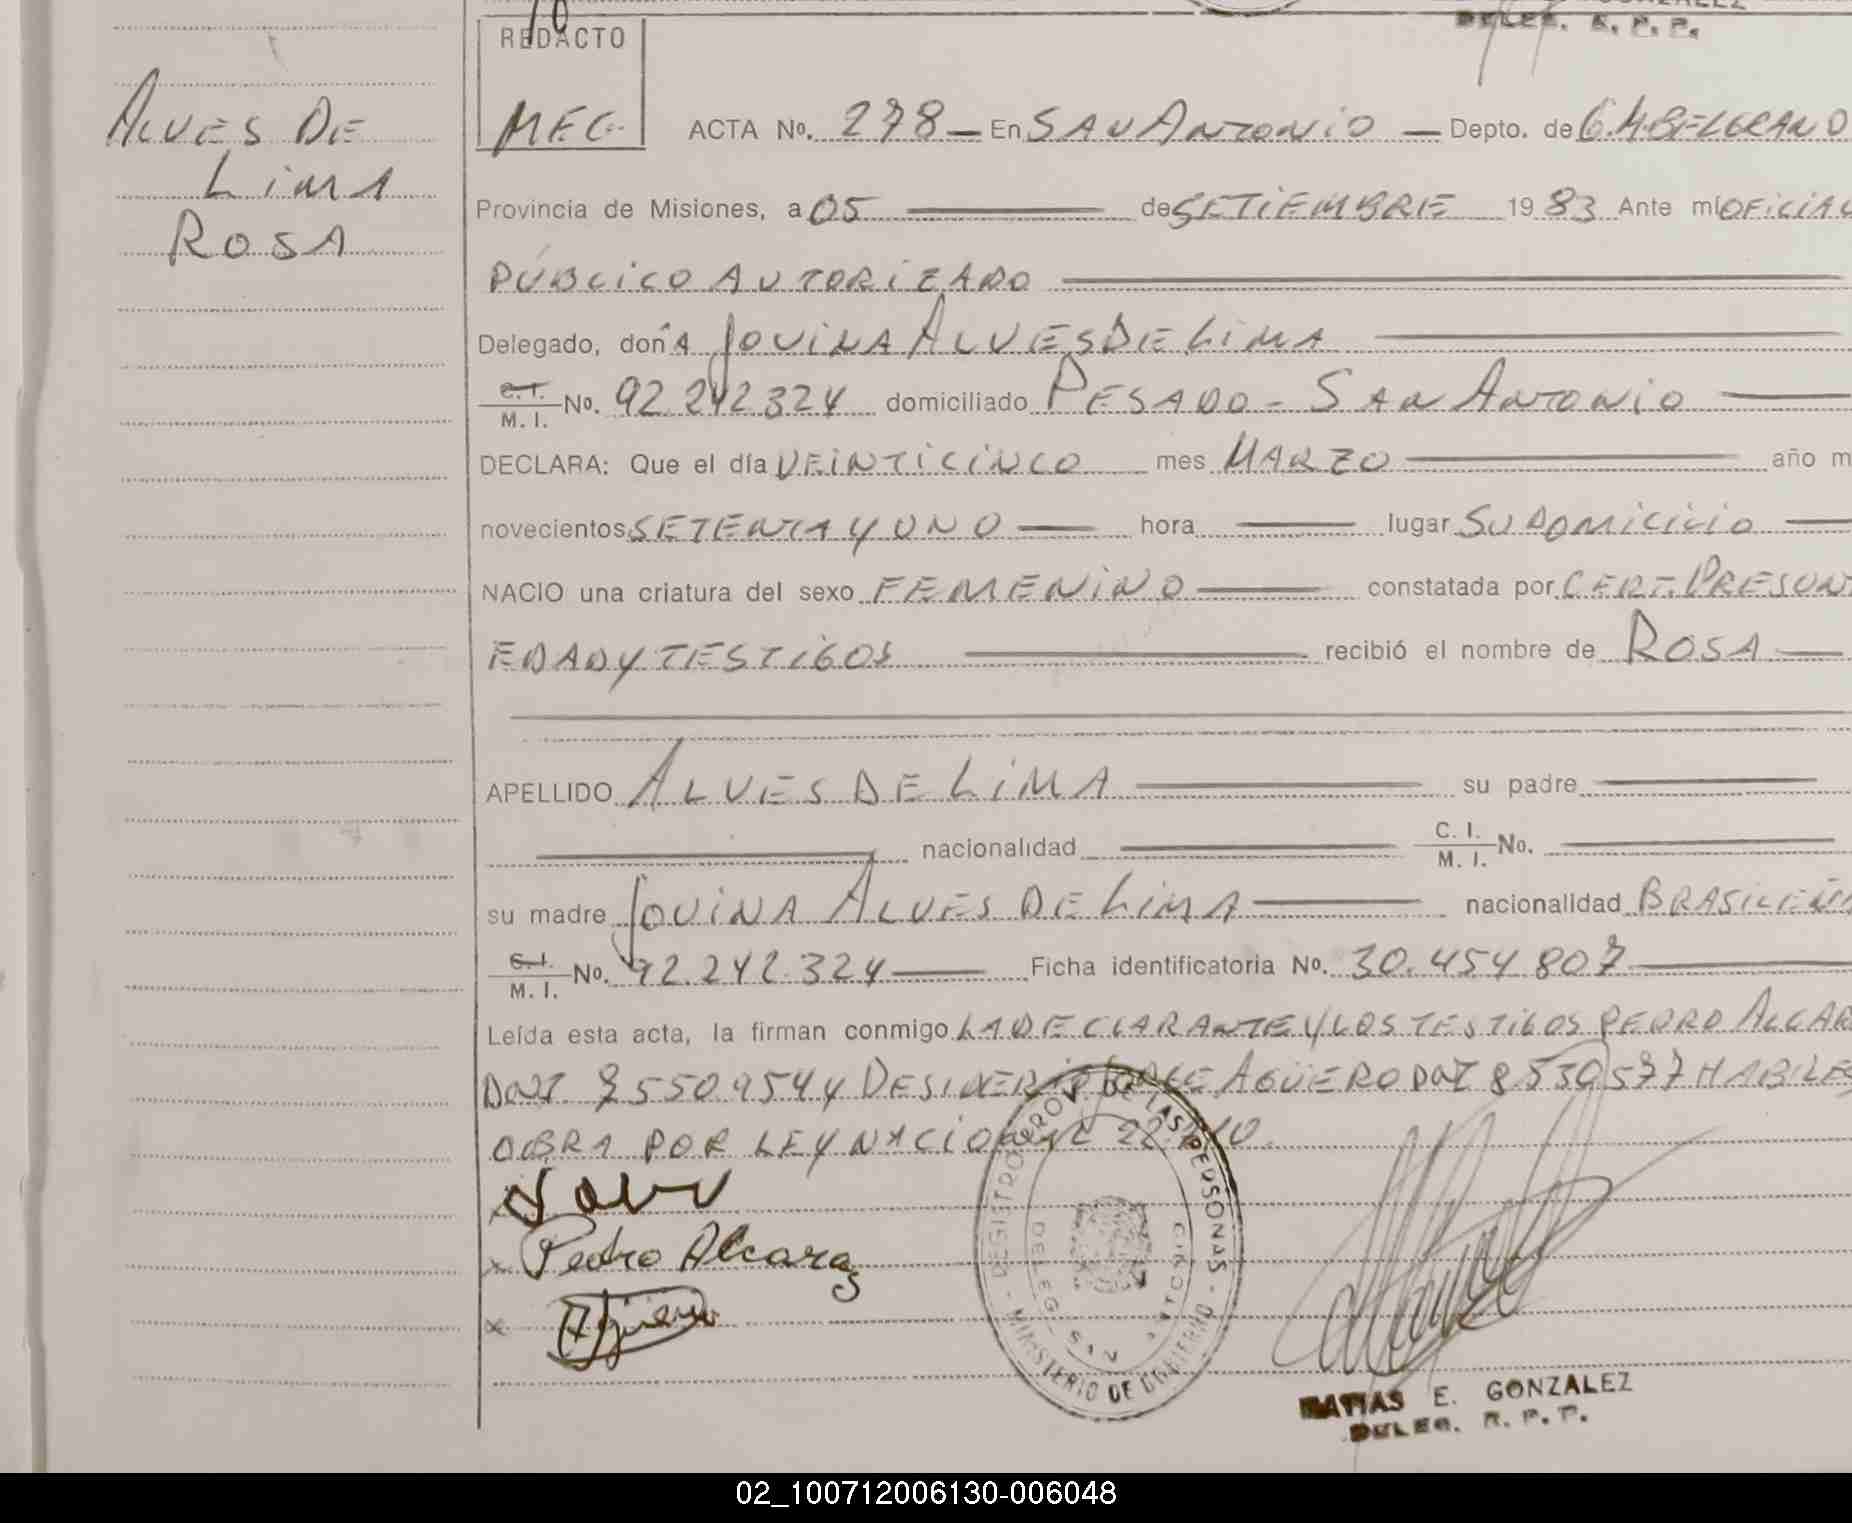 DELEG. R. P. P.
REDACTO
ALVES DE
LIMA
ROSA
MEG.
ACTA No. 278 — En SAN ANTONIO — Depto. de G.M.BELGRANO
Provincia de Misiones, a 05 — de SETIEMBRE 19 83 Ante mí OFICIAL
PÚBLICO AUTORIZADO —
Delegado, doñA JOVINA ALVES DE LIMA —
C.I. / M. I. No. 92.242.324 domiciliado PESADO - SAN ANTONIO —
DECLARA: Que el día VEINTICINCO mes MARZO — año m
novecientos SETENTA Y UNO — hora — lugar SU DOMICILIO —
NACIO una criatura del sexo FEMENINO — constatada por CERT. PRESUNT
EDAD Y TESTIGOS — recibió el nombre de ROSA —
APELLIDO ALVES DE LIMA — su padre —
— nacionalidad — C. I. / M. I. No. —
su madre JOVINA ALVES DE LIMA — nacionalidad BRASILEÑA
C.I. / M. I. No. 92.242.324 — Ficha identificatoria No. 30.454.807 —
Leída esta acta, la firman conmigo LA DECLARANTE Y LOS TESTIGOS PEDRO ALCAR
DNI. 7550.954 Y DESIDERIO JORGE AGÜERO DNI 8530577 HABILES
OBRA POR LEY NACIONAL
Pedro Alcaraz
Agüero
REGISTRO PROV. DE LAS PERSONAS - MINISTERIO DE GOBIERNO -
DELEG. SAN ANTONIO
MATIAS E. GONZALEZ
DELEG. R. P. P.
02_100712006130-006048